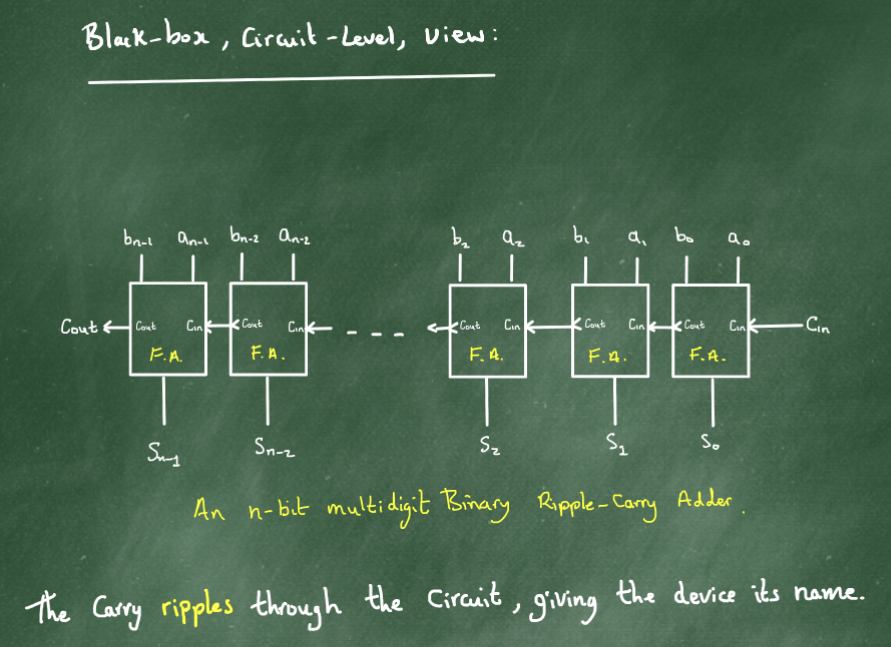 Black-box, Circuit-Level, view:
bn-1 an-1 bn-2 an-2 b2 a2 b1 a1 b0 a0
Cout Cout Cin Cout Cin - - - Cout Cin Cout Cin Cout Cin Cin
F.A. F.A. F.A. F.A. F.A.
Sn-1 Sn-2 S2 S1 S0
An n-bit multidigit Binary Ripple-Carry Adder.
The Carry ripples through the Circuit, giving the device its name.